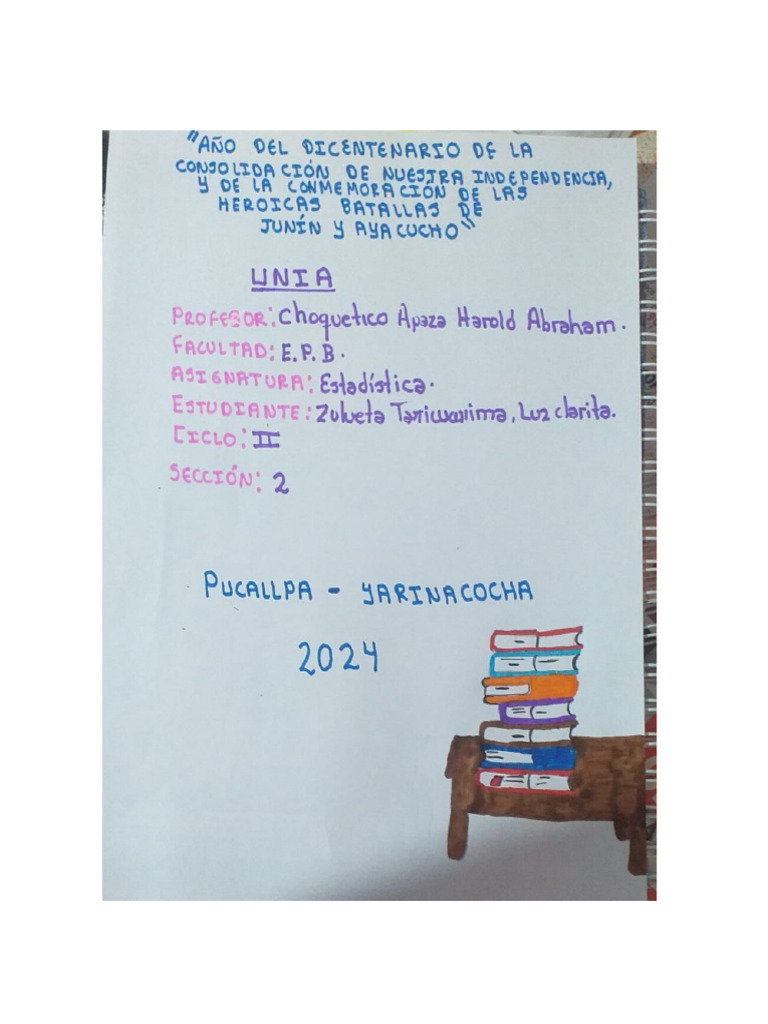 "AÑO DEL DICENTENARIO DE LA
CONSOLIDACIÓN DE NUESTRA INDEPENDENCIA,
Y DE LA CONMEMORACIÓN DE LAS
HEROICAS BATALLAS DE
JUNÍN Y AYACUCHO"
UNIA
PROFESOR: Choquetico Apaza Harold Abraham.
FACULTAD: E.P.B.
ASIGNATURA: Estadística.
ESTUDIANTE: Zulueta Taricuarima, Luz clarita.
CICLO: II
SECCIÓN: 2
PUCALLPA - YARINACOCHA
2024